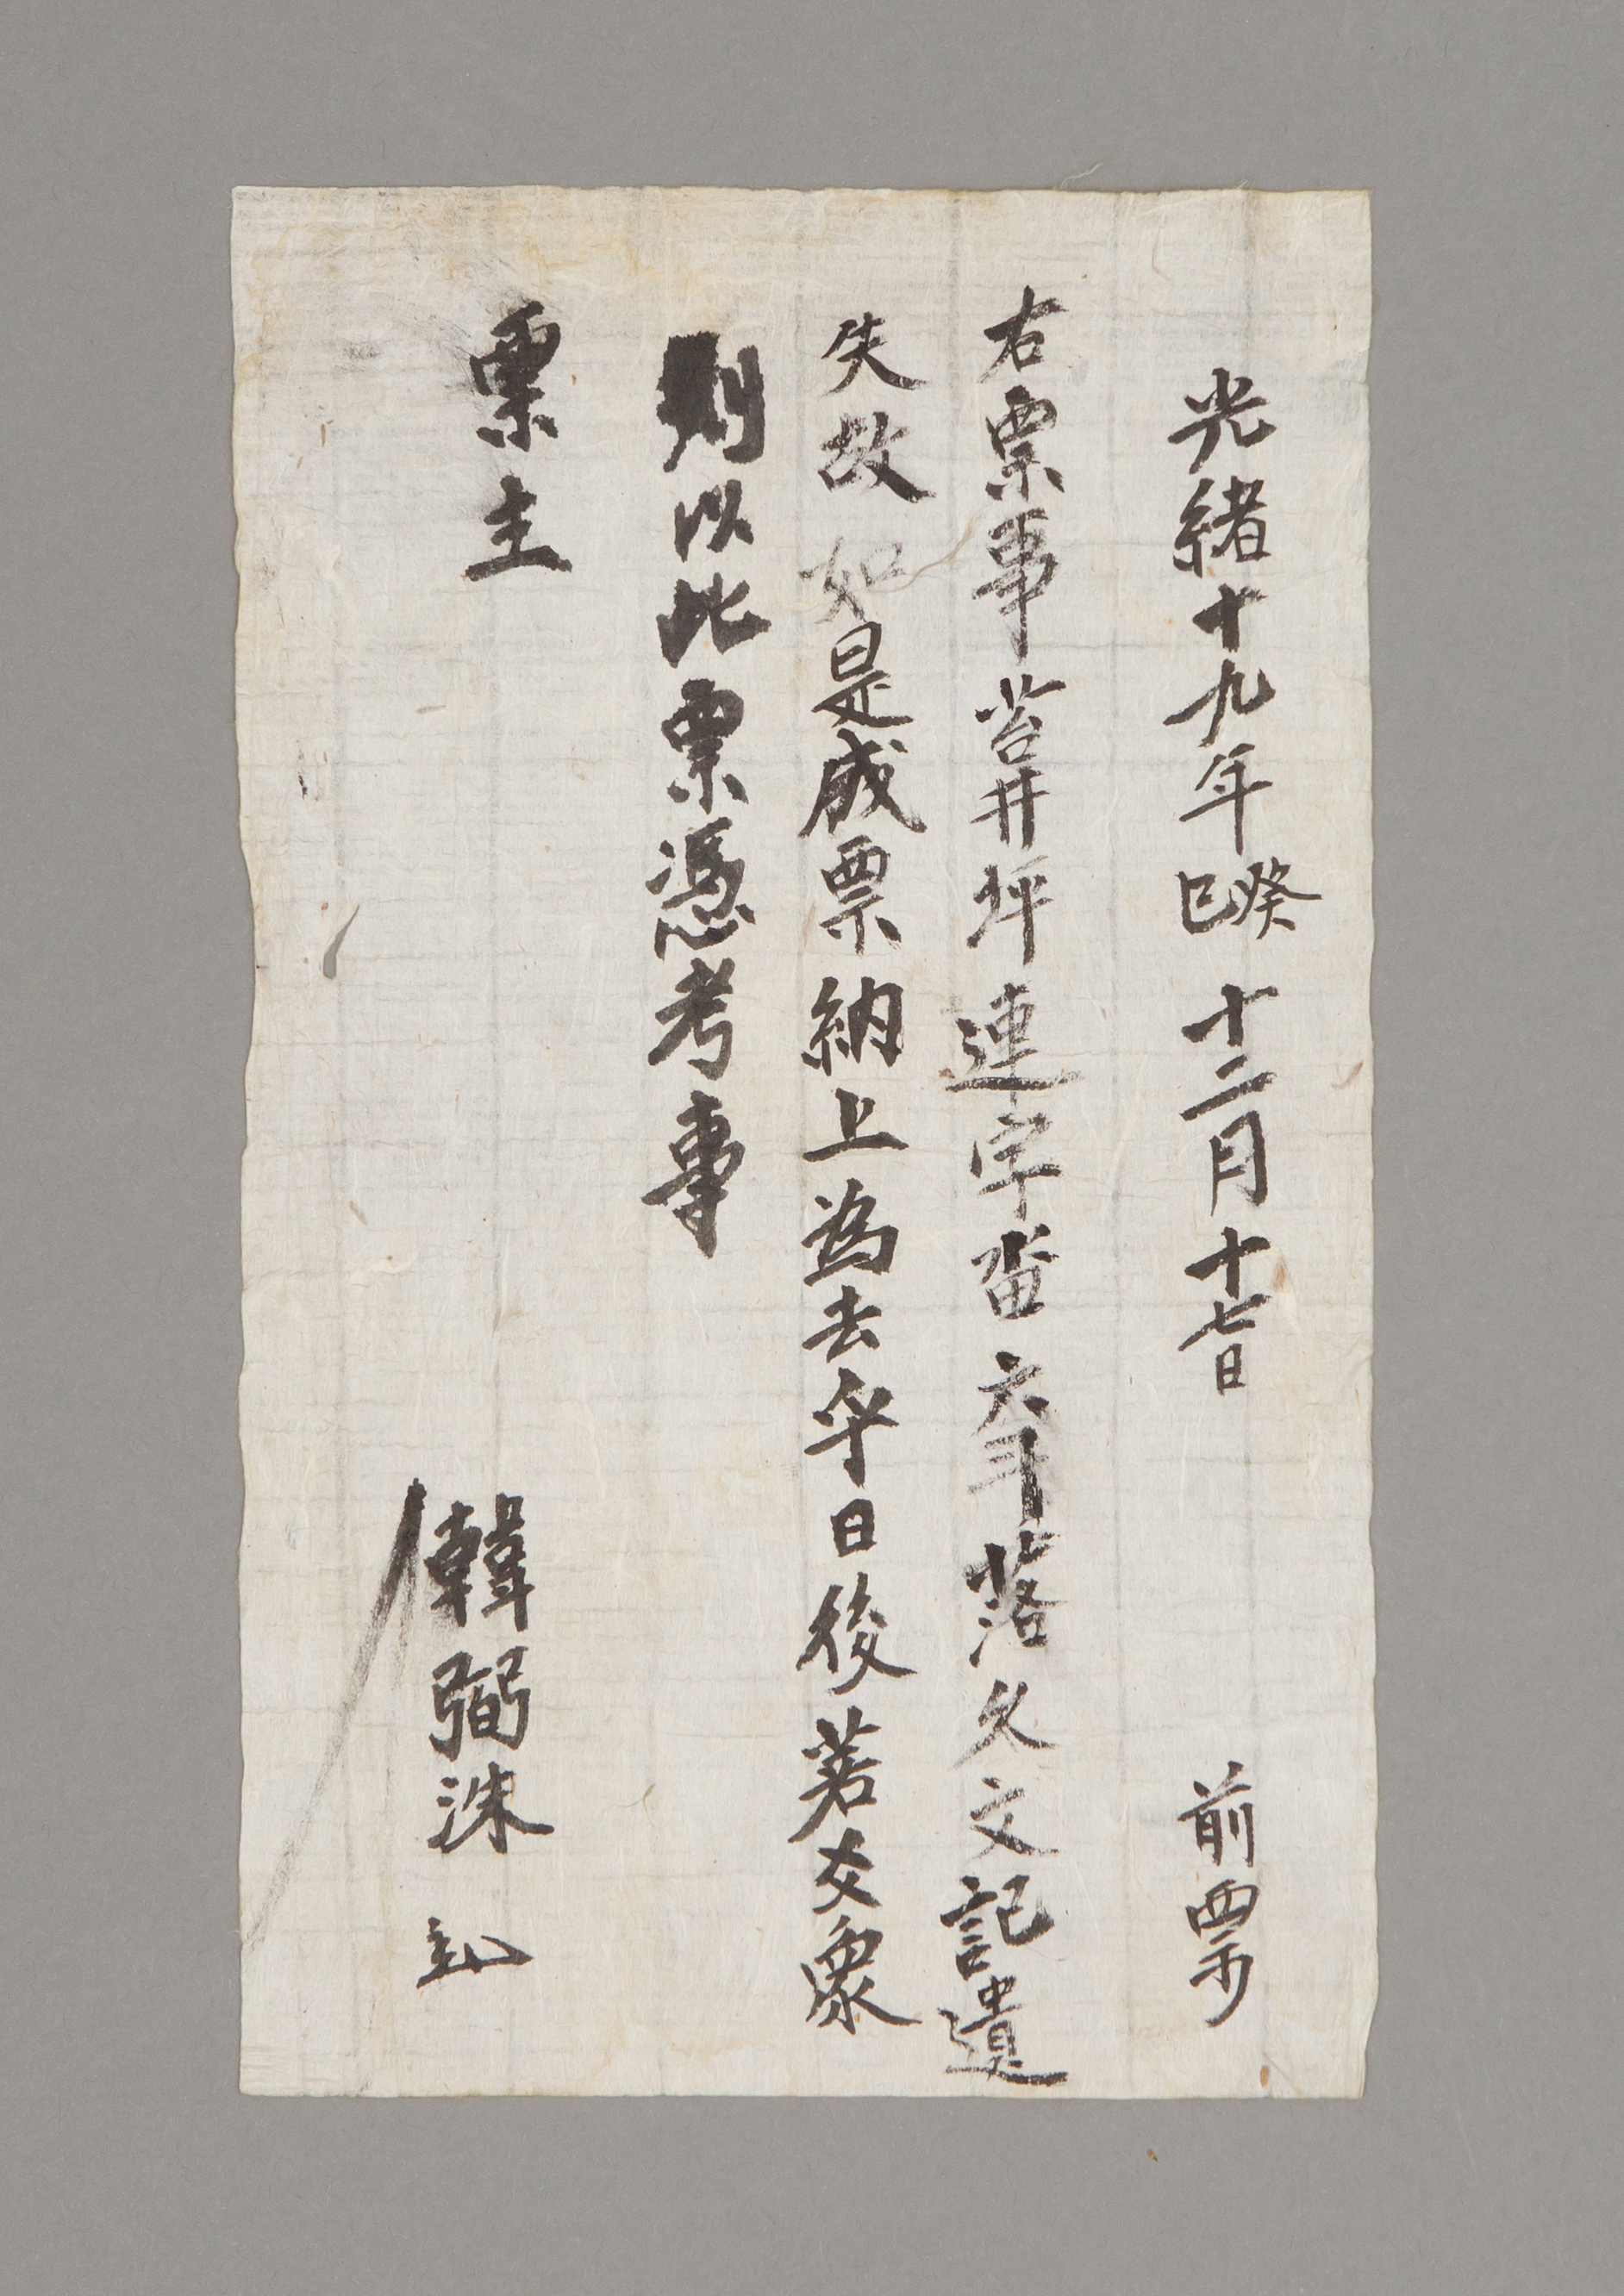 光緖十九年癸巳十二月十七日 前票
右票事苔井坪連字畓六斗落久文記遺
失故如是成票納上爲去乎日後若爻象
則以此票憑考事
票主
韓弼洙